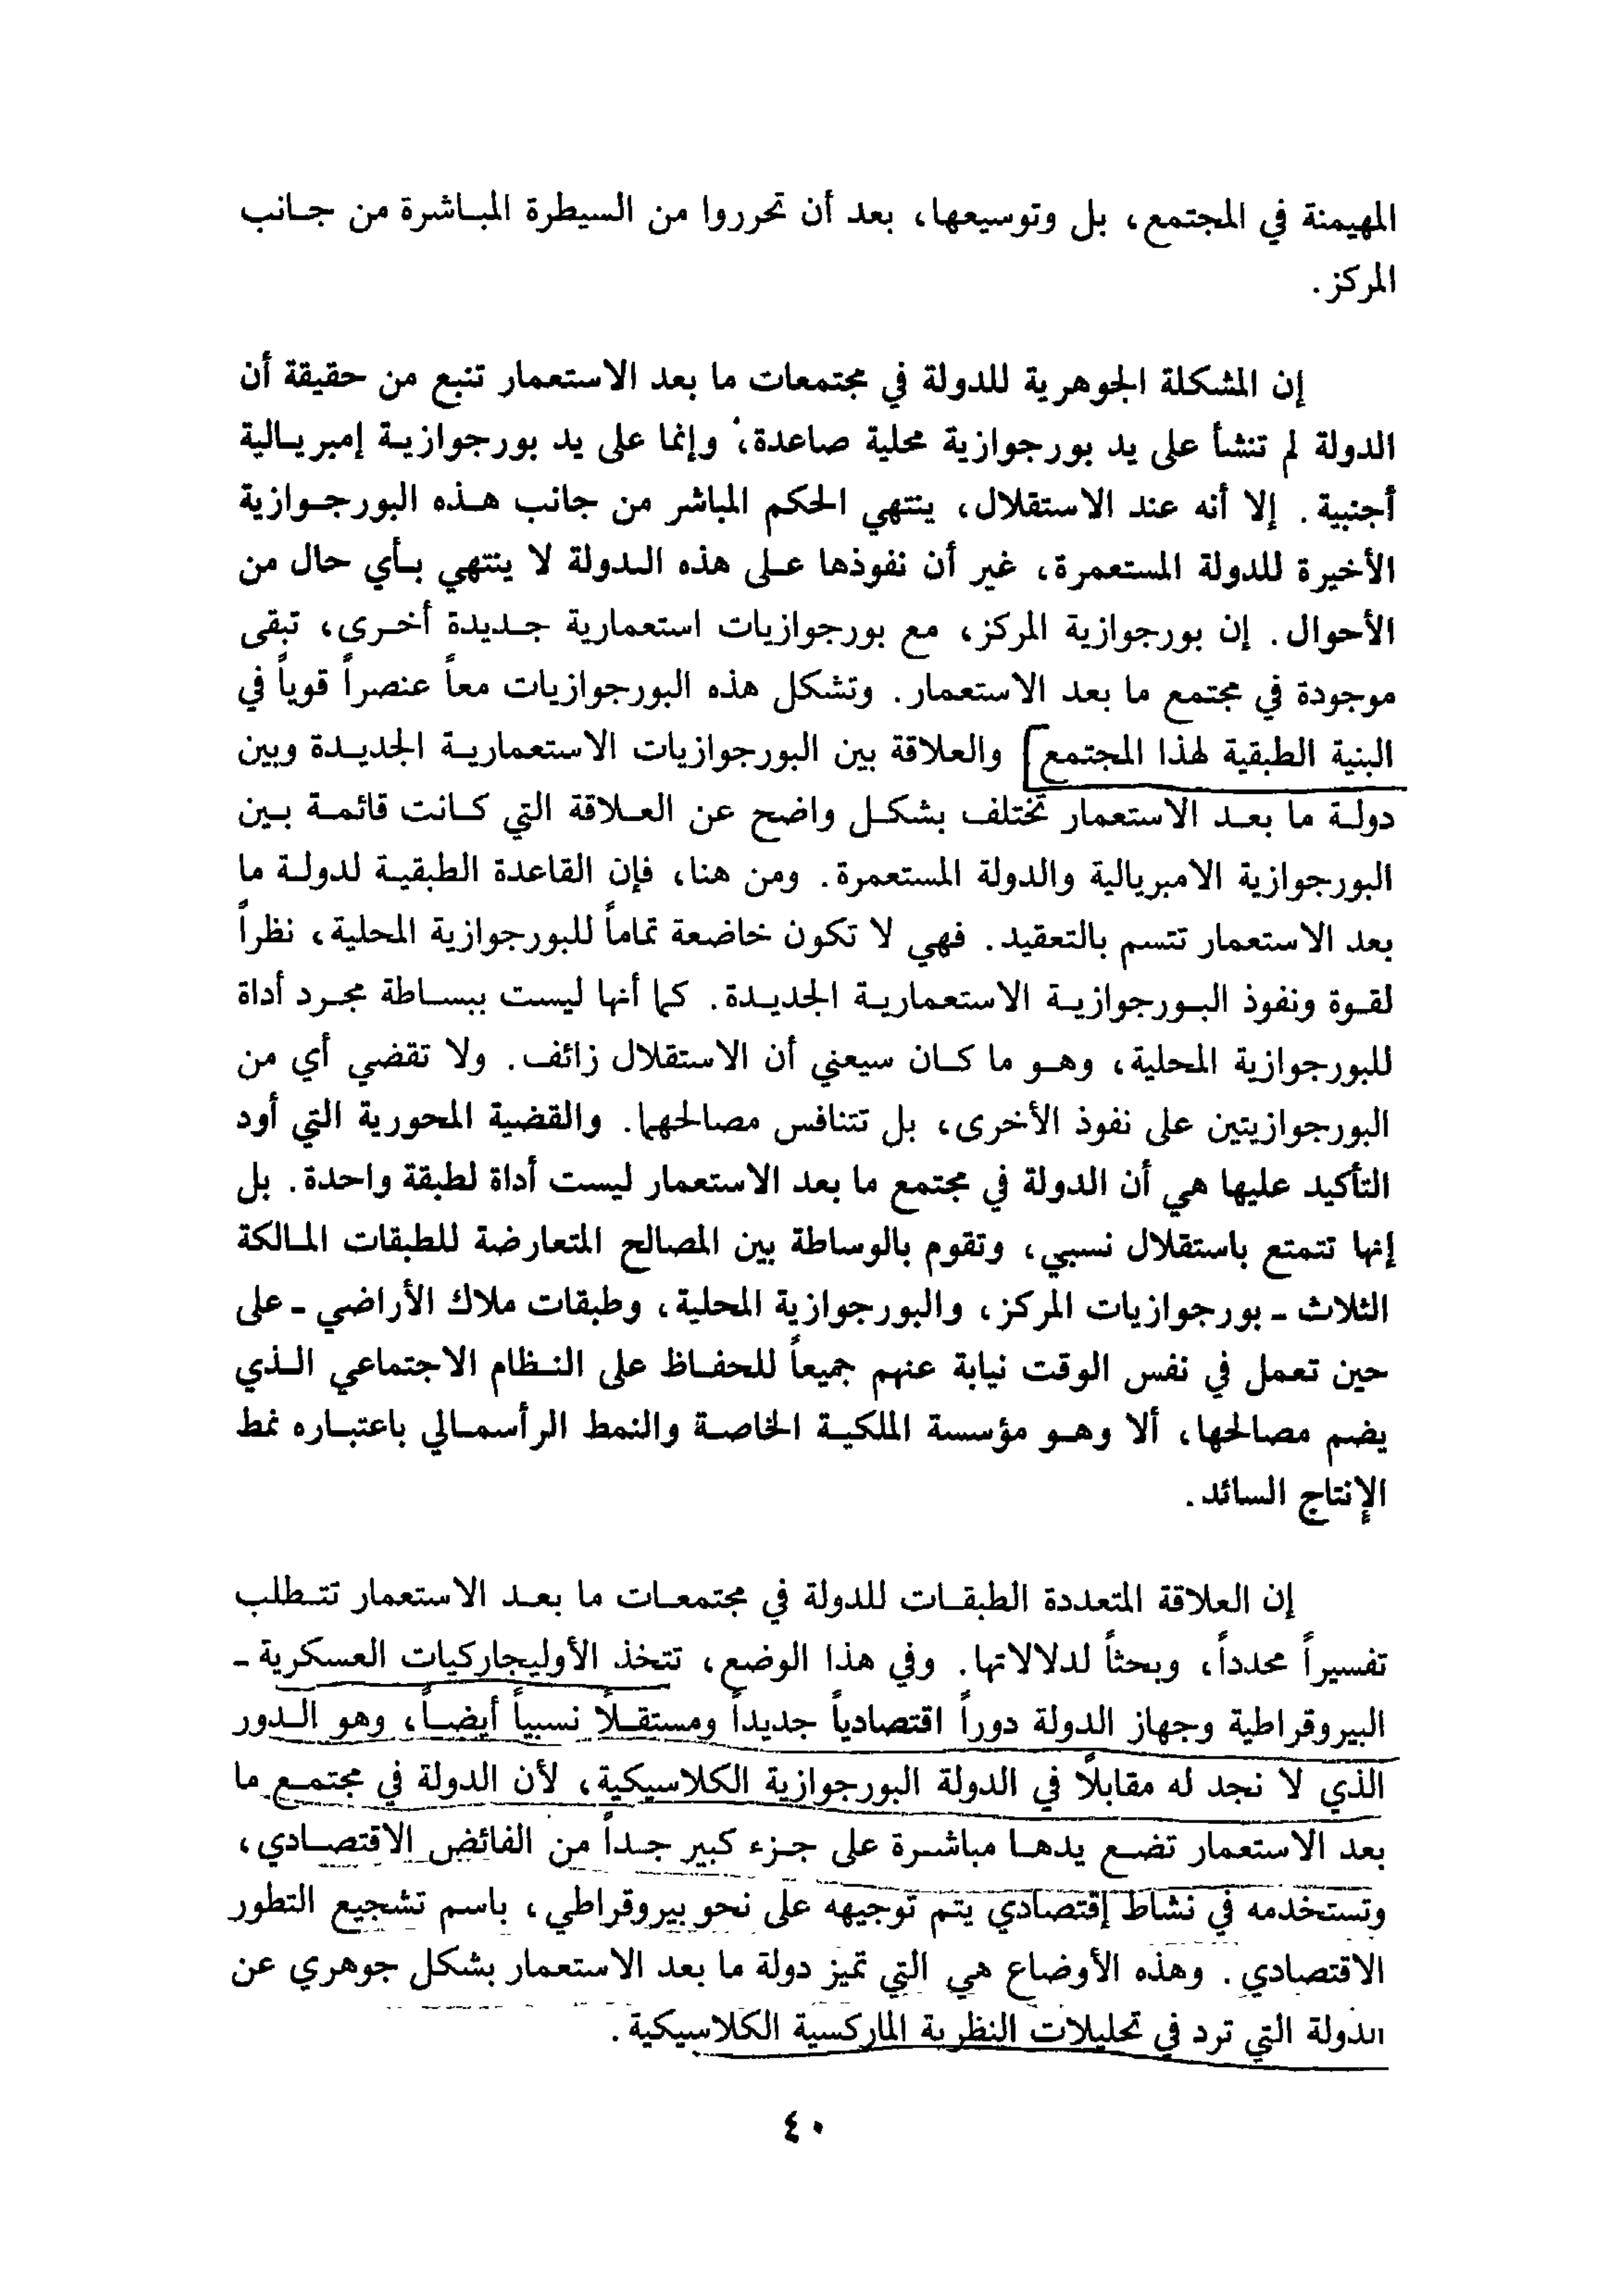 المهيمنة في المجتمع، بل وتوسيعها، بعد أن تحرروا من السيطرة المباشرة من جانب
المركز.
إن المشكلة الجوهرية للدولة في مجتمعات ما بعد الاستعمار تنبع من حقيقة أن
الدولة لم تنشأ على يد بورجوازية محلية صاعدة، وإنما على يد بورجوازية إمبريالية
أجنبية. إلا أنه عند الاستقلال، ينتهي الحكم المباشر من جانب هذه البورجوازية
الأخيرة للدولة المستعمرة، غير أن نفوذها على هذه الدولة لا ينتهي بأي حال من
الأحوال. إن بورجوازية المركز، مع بورجوازيات استعمارية جديدة أخرى، تبقى
موجودة في مجتمع ما بعد الاستعمار. وتشكل هذه البورجوازيات معاً عنصراً قوياً في
البنية الطبقية لهذا المجتمع] والعلاقة بين البورجوازيات الاستعمارية الجديدة وبين
دولة ما بعد الاستعمار تختلف بشكل واضح عن العلاقة التي كانت قائمة بين
البورجوازية الامبريالية والدولة المستعمرة. ومن هنا، فإن القاعدة الطبقية لدولة ما
بعد الاستعمار تتسم بالتعقيد. فهي لا تكون خاضعة تماماً للبورجوازية المحلية، نظراً
لقوة ونفوذ البورجوازية الاستعمارية الجديدة. كما أنها ليست ببساطة مجرد أداة
للبورجوازية المحلية، وهو ما كان سيعني أن الاستقلال زائف. ولا تقضي أي من
البورجوازيتين على نفوذ الأخرى، بل تتنافس مصالحهما. والقضية المحورية التي أود
التأكيد عليها هي أن الدولة في مجتمع ما بعد الاستعمار ليست أداة لطبقة واحدة. بل
إنها تتمتع باستقلال نسبي، وتقوم بالوساطة بين المصالح المتعارضة للطبقات المالكة
الثلاث - بورجوازيات المركز، والبورجوازية المحلية، وطبقات ملاك الأراضي - على
حين تعمل في نفس الوقت نيابة عنهم جميعاً للحفاظ على النظام الاجتماعي الذي
يضم مصالحها، ألا وهو مؤسسة الملكية الخاصة والنمط الرأسمالي باعتباره نمط
الإنتاج السائد.
إن العلاقة المتعددة الطبقات للدولة في مجتمعات ما بعد الاستعمار تتطلب
تفسيراً محدداً، وبحثاً لدلالاتها. وفي هذا الوضع، تتخذ الأوليجاركيات العسكرية -
البيروقراطية وجهاز الدولة دوراً اقتصادياً جديداً ومستقلاً نسبياً أيضاً، وهو الدور
الذي لا نجد له مقابلاً في الدولة البورجوازية الكلاسيكية، لأن الدولة في مجتمع ما
بعد الاستعمار تضع يدها مباشرة على جزء كبير جداً من الفائض الاقتصادي،
وتستخدمه في نشاط إقتصادي يتم توجيهه على نحو بيروقراطي، باسم تشجيع التطور
الاقتصادي. وهذه الأوضاع هي التي تميز دولة ما بعد الاستعمار بشكل جوهري عن
الدولة التي ترد في تحليلات النظرية الماركسية الكلاسيكية.
٤٠